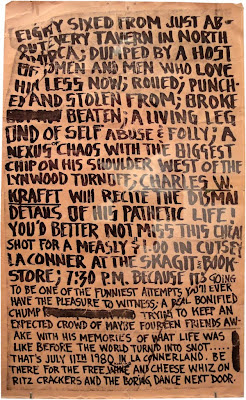 EIGHTY SIXED FROM JUST AB-
OUT EVERY TAVERN IN NORTH
AMERICA; DUMPED BY A HOST
OF WOMEN AND MEN WHO LOVE
HIM LESS NOW; ROLLED; PUNCH-
ED AND STOLEN FROM; BROKE
BEATEN; A LIVING LEG
END OF SELF ABUSE & FOLLY; A
NEXUS OF CHAOS WITH THE BIGGEST
CHIP ON HIS SHOULDER WEST OF THE
LYNWOOD TURNOFF; CHARLES W.
KRAFFT WILL RECITE THE DISMAL
DETAILS OF HIS PATHETIC LIFE!
YOU'D BETTER NOT MISS THIS CHEAP
SHOT FOR A MEASLY $1.00 IN CUTSEY
LA CONNER AT THE SKAGIT BAY BOOK-
STORE; 7:30 P.M. BECAUSE IT'S GOING
TO BE ONE OF THE FUNNIEST ATTEMPTS YOU'LL EVER
HAVE THE PLEASURE TO WITNESS; A REAL BONIFIED
CHUMP TRYING TO KEEP AN
EXPECTED CROWD OF MAYBE FOURTEEN FRIENDS AW-
AKE WITH HIS MEMORIES OF WHAT LIFE WAS
LIKE BEFORE THE WORLD TURNED INTO SNOT.....
THAT'S JULY 11TH 1980 IN LA CONNERLAND. BE
THERE FOR THE FREE WINE AND CHEESE WHIZ ON
RITZ CRACKERS AND THE BORING DANCE NEXT DOOR.